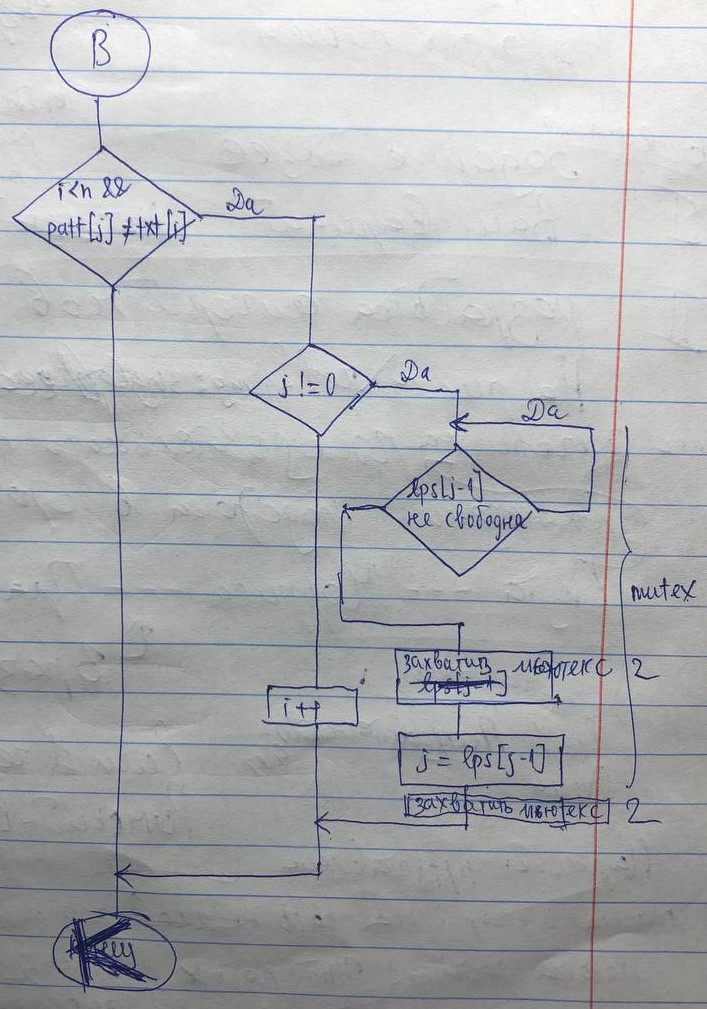 B
i<n &&
patt[j] ≠ txt[i]
Да
j != 0
Да
Да
lps[j-1]
не свободна
mutex
захватить мьютекс 2
i++
j = lps[j-1]
захватить мьютекс 2
K